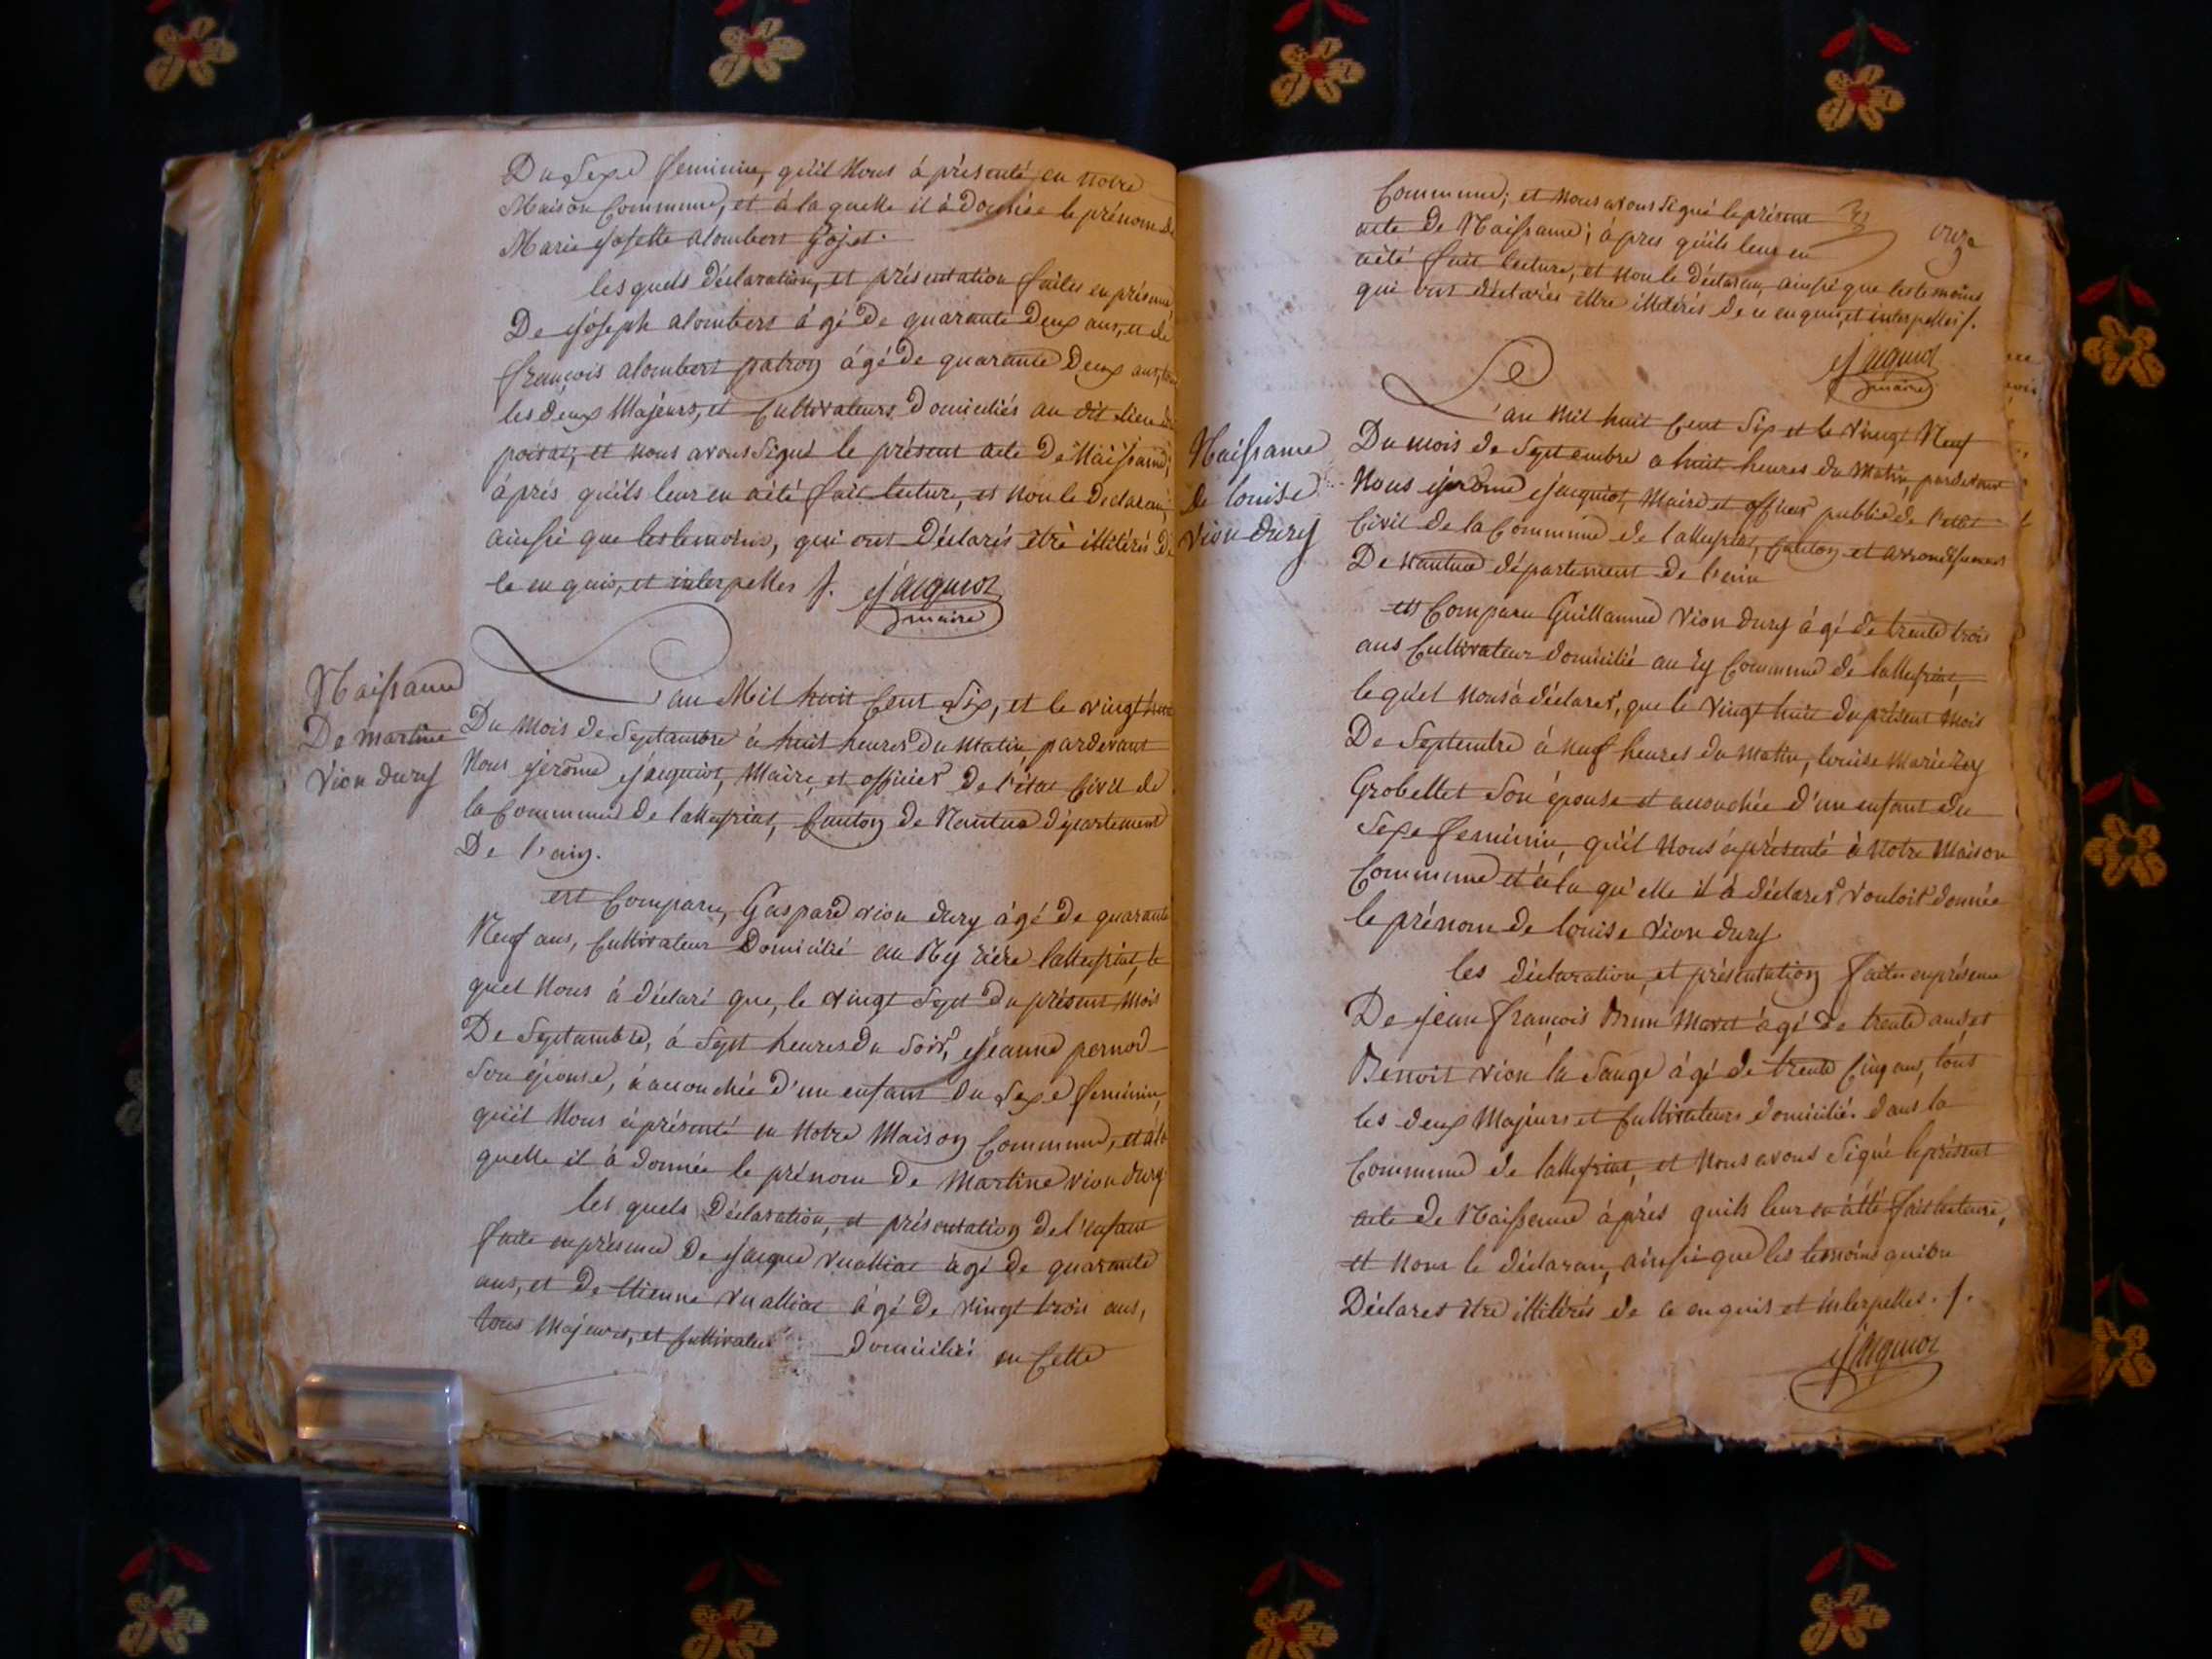 Du Sexe feminin, qu'il Nous á présenté en notre
Maison Commune, et á la quelle il á Donnée le prénom de
Marie Josette alombert Gojet.
les quels déclaration, et présentation faites en présence
De Joseph alombert á gé De quarante Deux ans, et de
françois alombert patroy ágé De quarante Deux ans, tous
les deux Majeurs, et Cultivateurs Domiciliés au dit Lieu du
poizat; et nous avons Signé le présent acte De Naissance;
áprés qu'ils leur en a été fait lecture, et Non le Declarant,
ainssi que les temoins, qui ont Déclarés être illitérés de
ce en quis, et interpelles /. Jacquiot
maire
Naissance
De martine
Vion dury
L'an Mil huit Cent Six, et le vingt huit
Du Mois de Septambre á huit heures du Matin pardevant
Nous jérôme jacquiot, Maire, et officier De l'état Civil de
la Commune de lalleyriat, Canton de Nantua département
De l'ain.
est Comparu, Gaspard vion dury ágé de quarante
Neuf ans, Cultivateur Domicilié au Ry riére lalleyriat, le
quel Nous á déclaré que, le vingt Sept du présent Mois
De Septambre, á Sept heures du Soir, Jeanne pernod
Son épouse, á accouchée d'un enfant Du Sexe feminin,
qu'il Nous á présenté en Notre Maison Commune, et á la
quelle il á donnée le prénom de Martine vion dury.
les quels Déclaration, et présentation de l'enfant
faite en présence De jacque vuaillat ágé de quarante
ans, et De Etienne vuaillat ágé De vingt trois ans,
tous Majeurs, et Cultivateurs domiciliés en Cette
Commune; et nous avons Signé le présent
acte De Naissance; á pres qu'ils leur en
a été fait lecture, et non le Déclarant, ainssi que les temoins
qui ont déclarés être illitérés De ce en quis, et interpelles /.
onze
Jacquiot
maire
Naissance
de louise
vion dury
L'an mil huit Cent Six et le vingt Neuf
Du mois de Septembre a huit heures du Matin, pardevant
Nous jerôme jacquiot, Maire et officier public de l'etat
Civil de la Commune de lalleyriat, Canton et arrondissement
De nantua département de l'ain
est Comparu Guillaume vion dury á gé de trente trois
ans Cultivateur domicilié au Ry Commune de lalleyriat,
le quel nous á déclarer, que le vingt huit du présent Mois
De Septembre á Neuf heures du Matin, louise Marie Rey
Grobellet Son épouse et accouchée d'un enfant du
Sexe feminin, qu'il nous á présenté á Notre Maison
Commune et á la qu'elle il á déclarer vouloir donnée
le prénom de louise vion dury
les déclaration, et présentation faites en présence
De jean françois Brun Moret á gé De trente ans et
Benoit vion la Sauge á gé de trente Cinq ans, tous
les deux Majeurs et Cultivateurs domiciliés dans la
Commune de lalleyriat, et Nous avons Signé le présent
acte de Naissance áprés qu'ils leur en á été fait lecture,
et Non le déclarant, ainssi que les temoins qui on
Déclarer être illitérés de ce en quis et interpelles. /.
Jacquiot